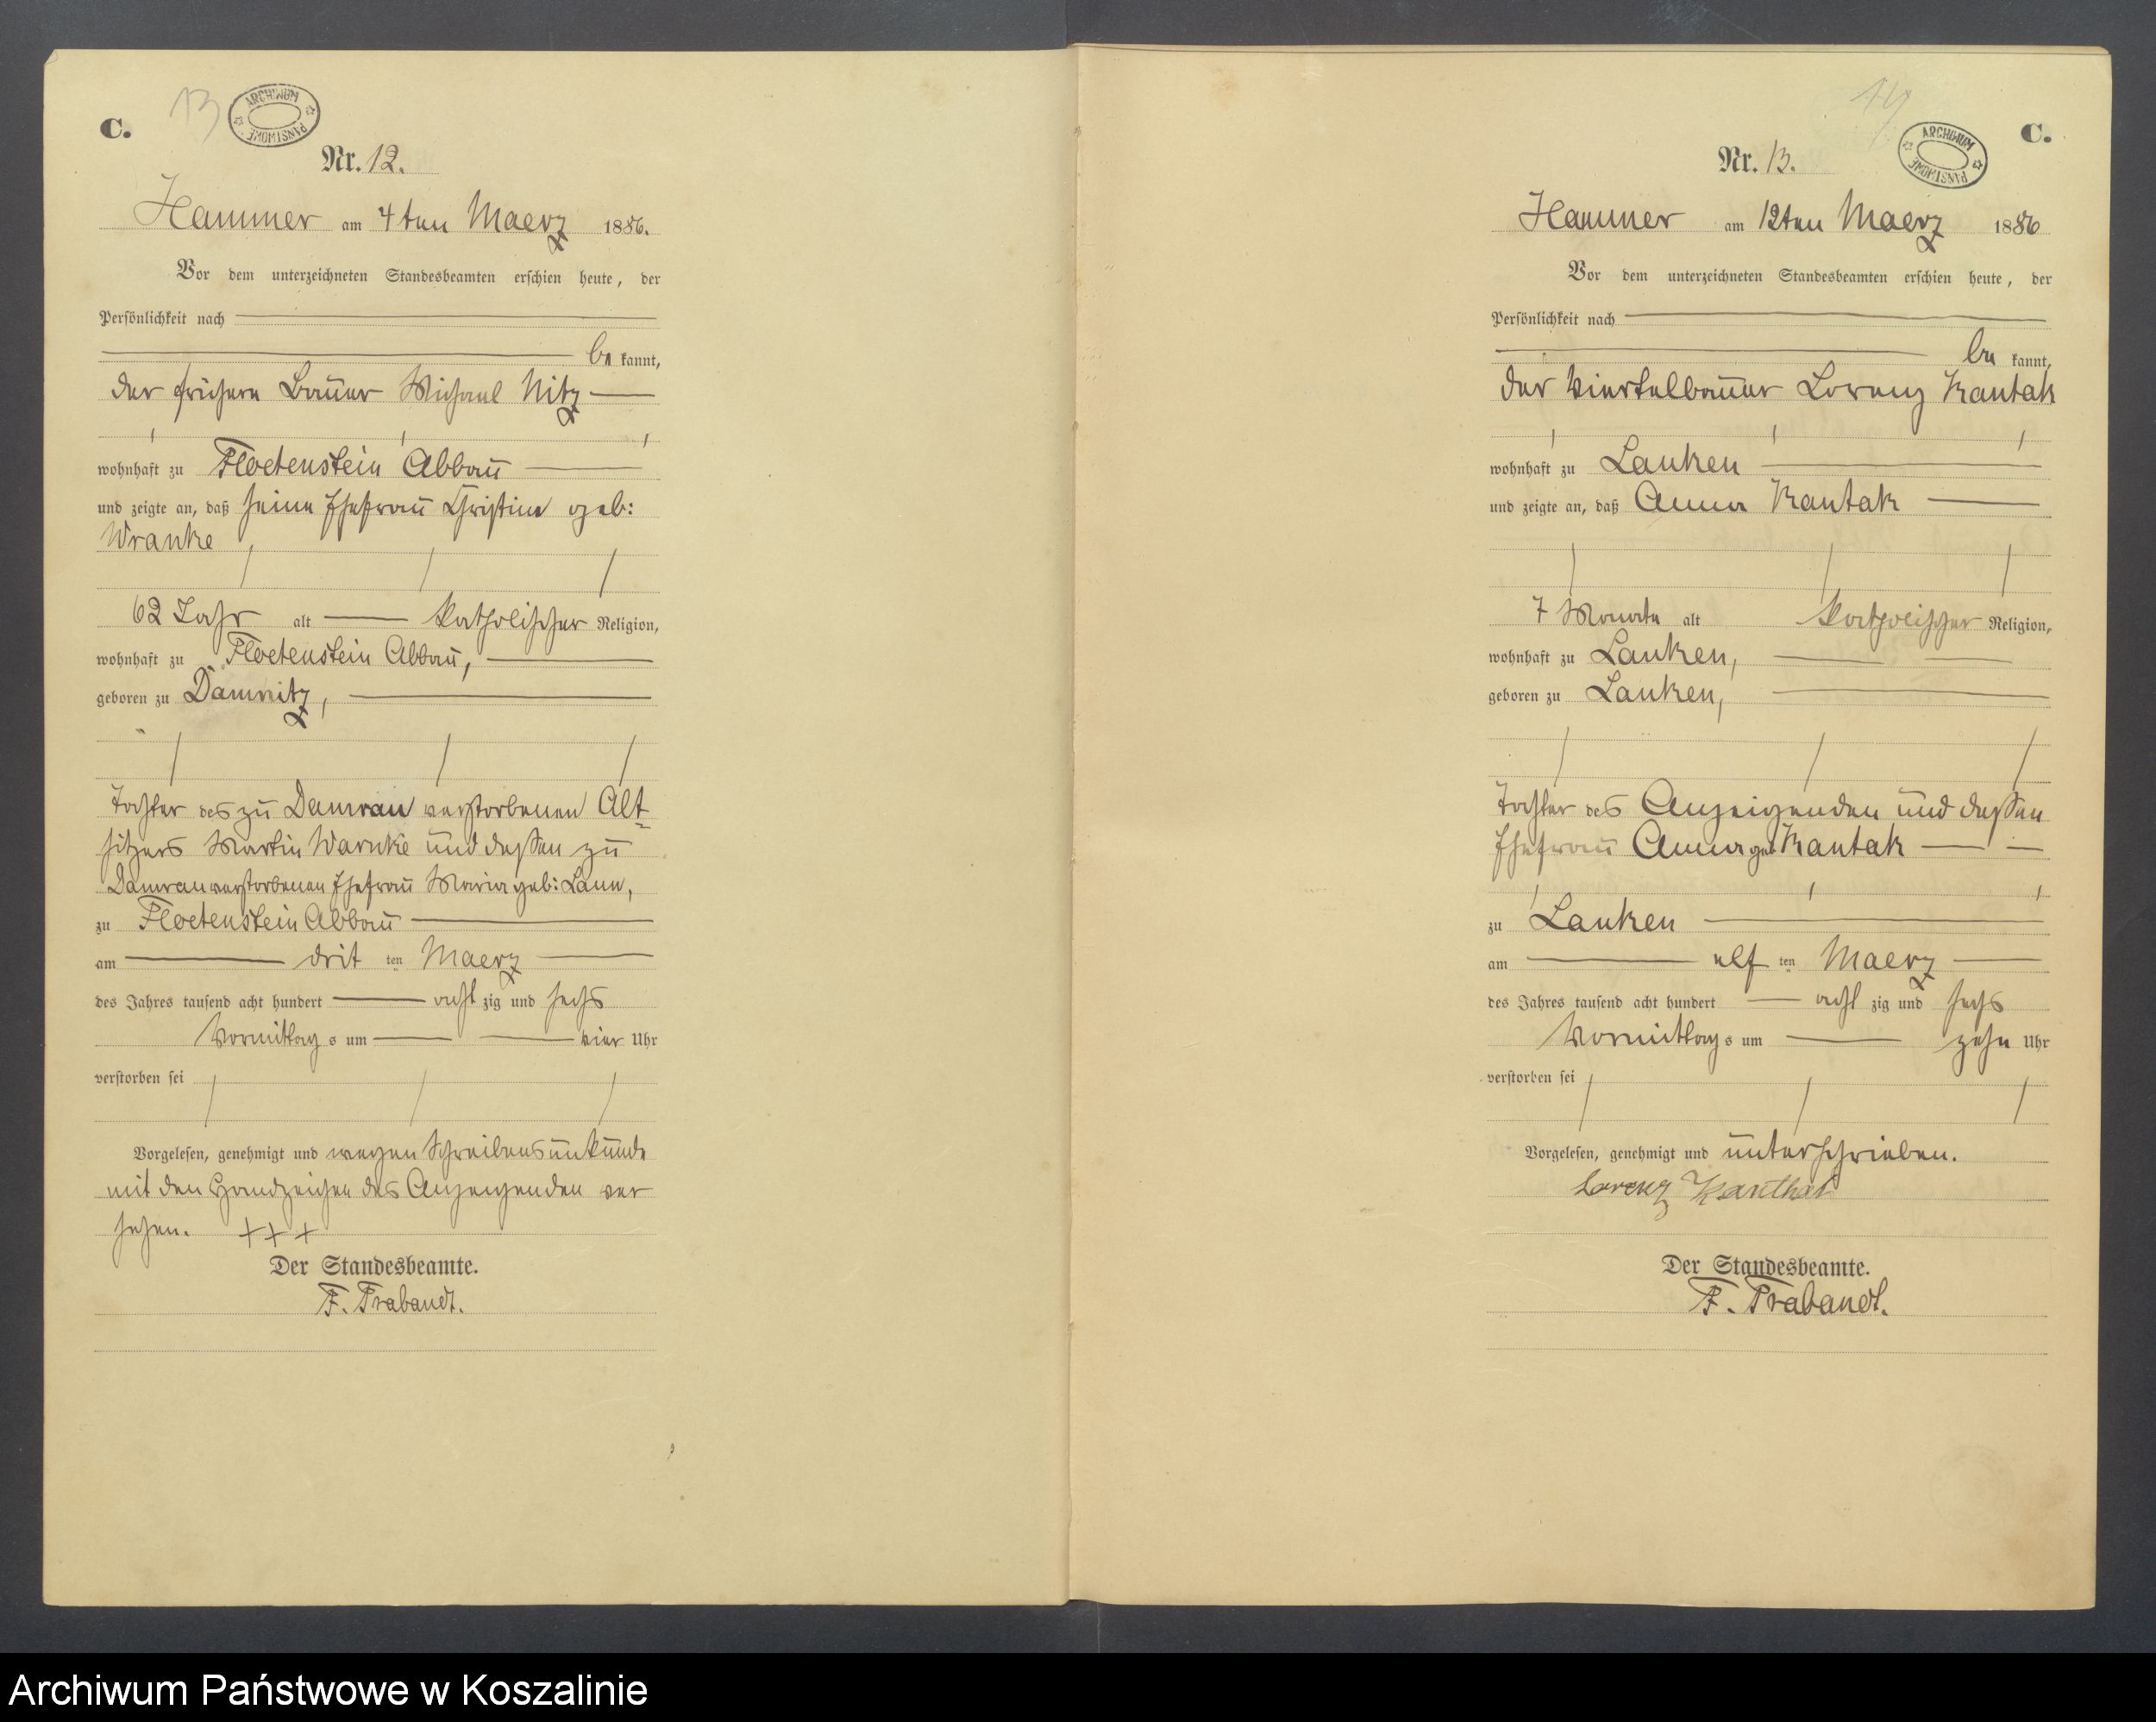 C.
13
ARCHIWUM PAŃSTWOWE
Nr. 12.
Hammer am 4ten Maerz 1886.
Vor dem unterzeichneten Standesbeamten erschien heute, der
Persönlichkeit nach
be kannt,
der frühere Bauer Michael Nitz
wohnhaft zu Floetenstein Abbau
und zeigte an, daß seine Ehefrau Christine geb:
Wranke
62 Jahr alt katholischer Religion,
wohnhaft zu Floetenstein Abbau,
geboren zu Damnitz,
Tochter des zu Damrau verstorbenen Alt-
sitzers Martin Warnke und dessen zu
Damrau verstorbenen Ehefrau Maria geb:
zu Floetenstein Abbau
am drit ten Maerz
des Jahres tausend acht hundert acht zig und sechs
Vormittag s um vier Uhr
verstorben sei
Vorgelesen, genehmigt und wegen Schreibensunkunde
mit den Handzeichen des Anzeigenden ver
sehen. +++
Der Standesbeamte.
F. Trabandt.
14
C.
ARCHIWUM PAŃSTWOWE
Nr. 13.
Hammer am 12ten Maerz 1886
Vor dem unterzeichneten Standesbeamten erschien heute, der
Persönlichkeit nach
be kannt,
der Viertelbauer Lorenz Kantak
wohnhaft zu Lanken
und zeigte an, daß Anna Kantak
7 Monate alt katholischer Religion,
wohnhaft zu Lanken,
geboren zu Lanken,
Tochter des Anzeigenden und dessen
Ehefrau Anna geb Kantak
zu Lanken
am elf ten Maerz
des Jahres tausend acht hundert acht zig und sechs
Vormittag s um zehn Uhr
verstorben sei
Vorgelesen, genehmigt und unterschrieben.
Lorenz Kanthak
Der Standesbeamte.
F. Trabandt.
Archiwum Państwowe w Koszalinie